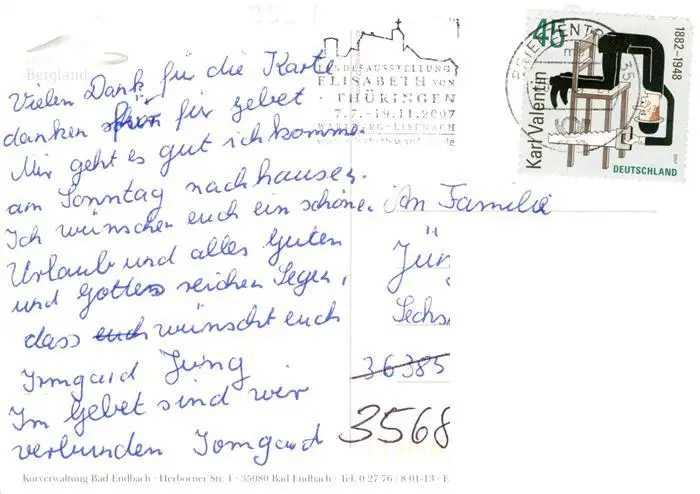 Bergland
Vielen Dank für die Karte
danken für für gebet
Mir geht es gut ich komme
am Sonntag nachhausen.
Ich wünschen euch ein schöne
Urlaub und alles Guten
und Gottes reichen Segen,
dass euch wünscht euch
Irmgard Jung
Im Gebet sind wir
verbunden Irmgard
LANDESAUSSTELLUNG
ELISABETH VON
THÜRINGEN
7.7.-19.11.2007
WARTBURG-EISENACH
BRIEFZENTR
35
45
Karl Valentin
1882-1948
DEUTSCHLAND
An Familie
Jun
Sechs
36385
3568
Kurverwaltung Bad Endbach · Herborner Str. 1 · 35080 Bad Endbach · Tel. 0 27 76 / 8 01-13 · F